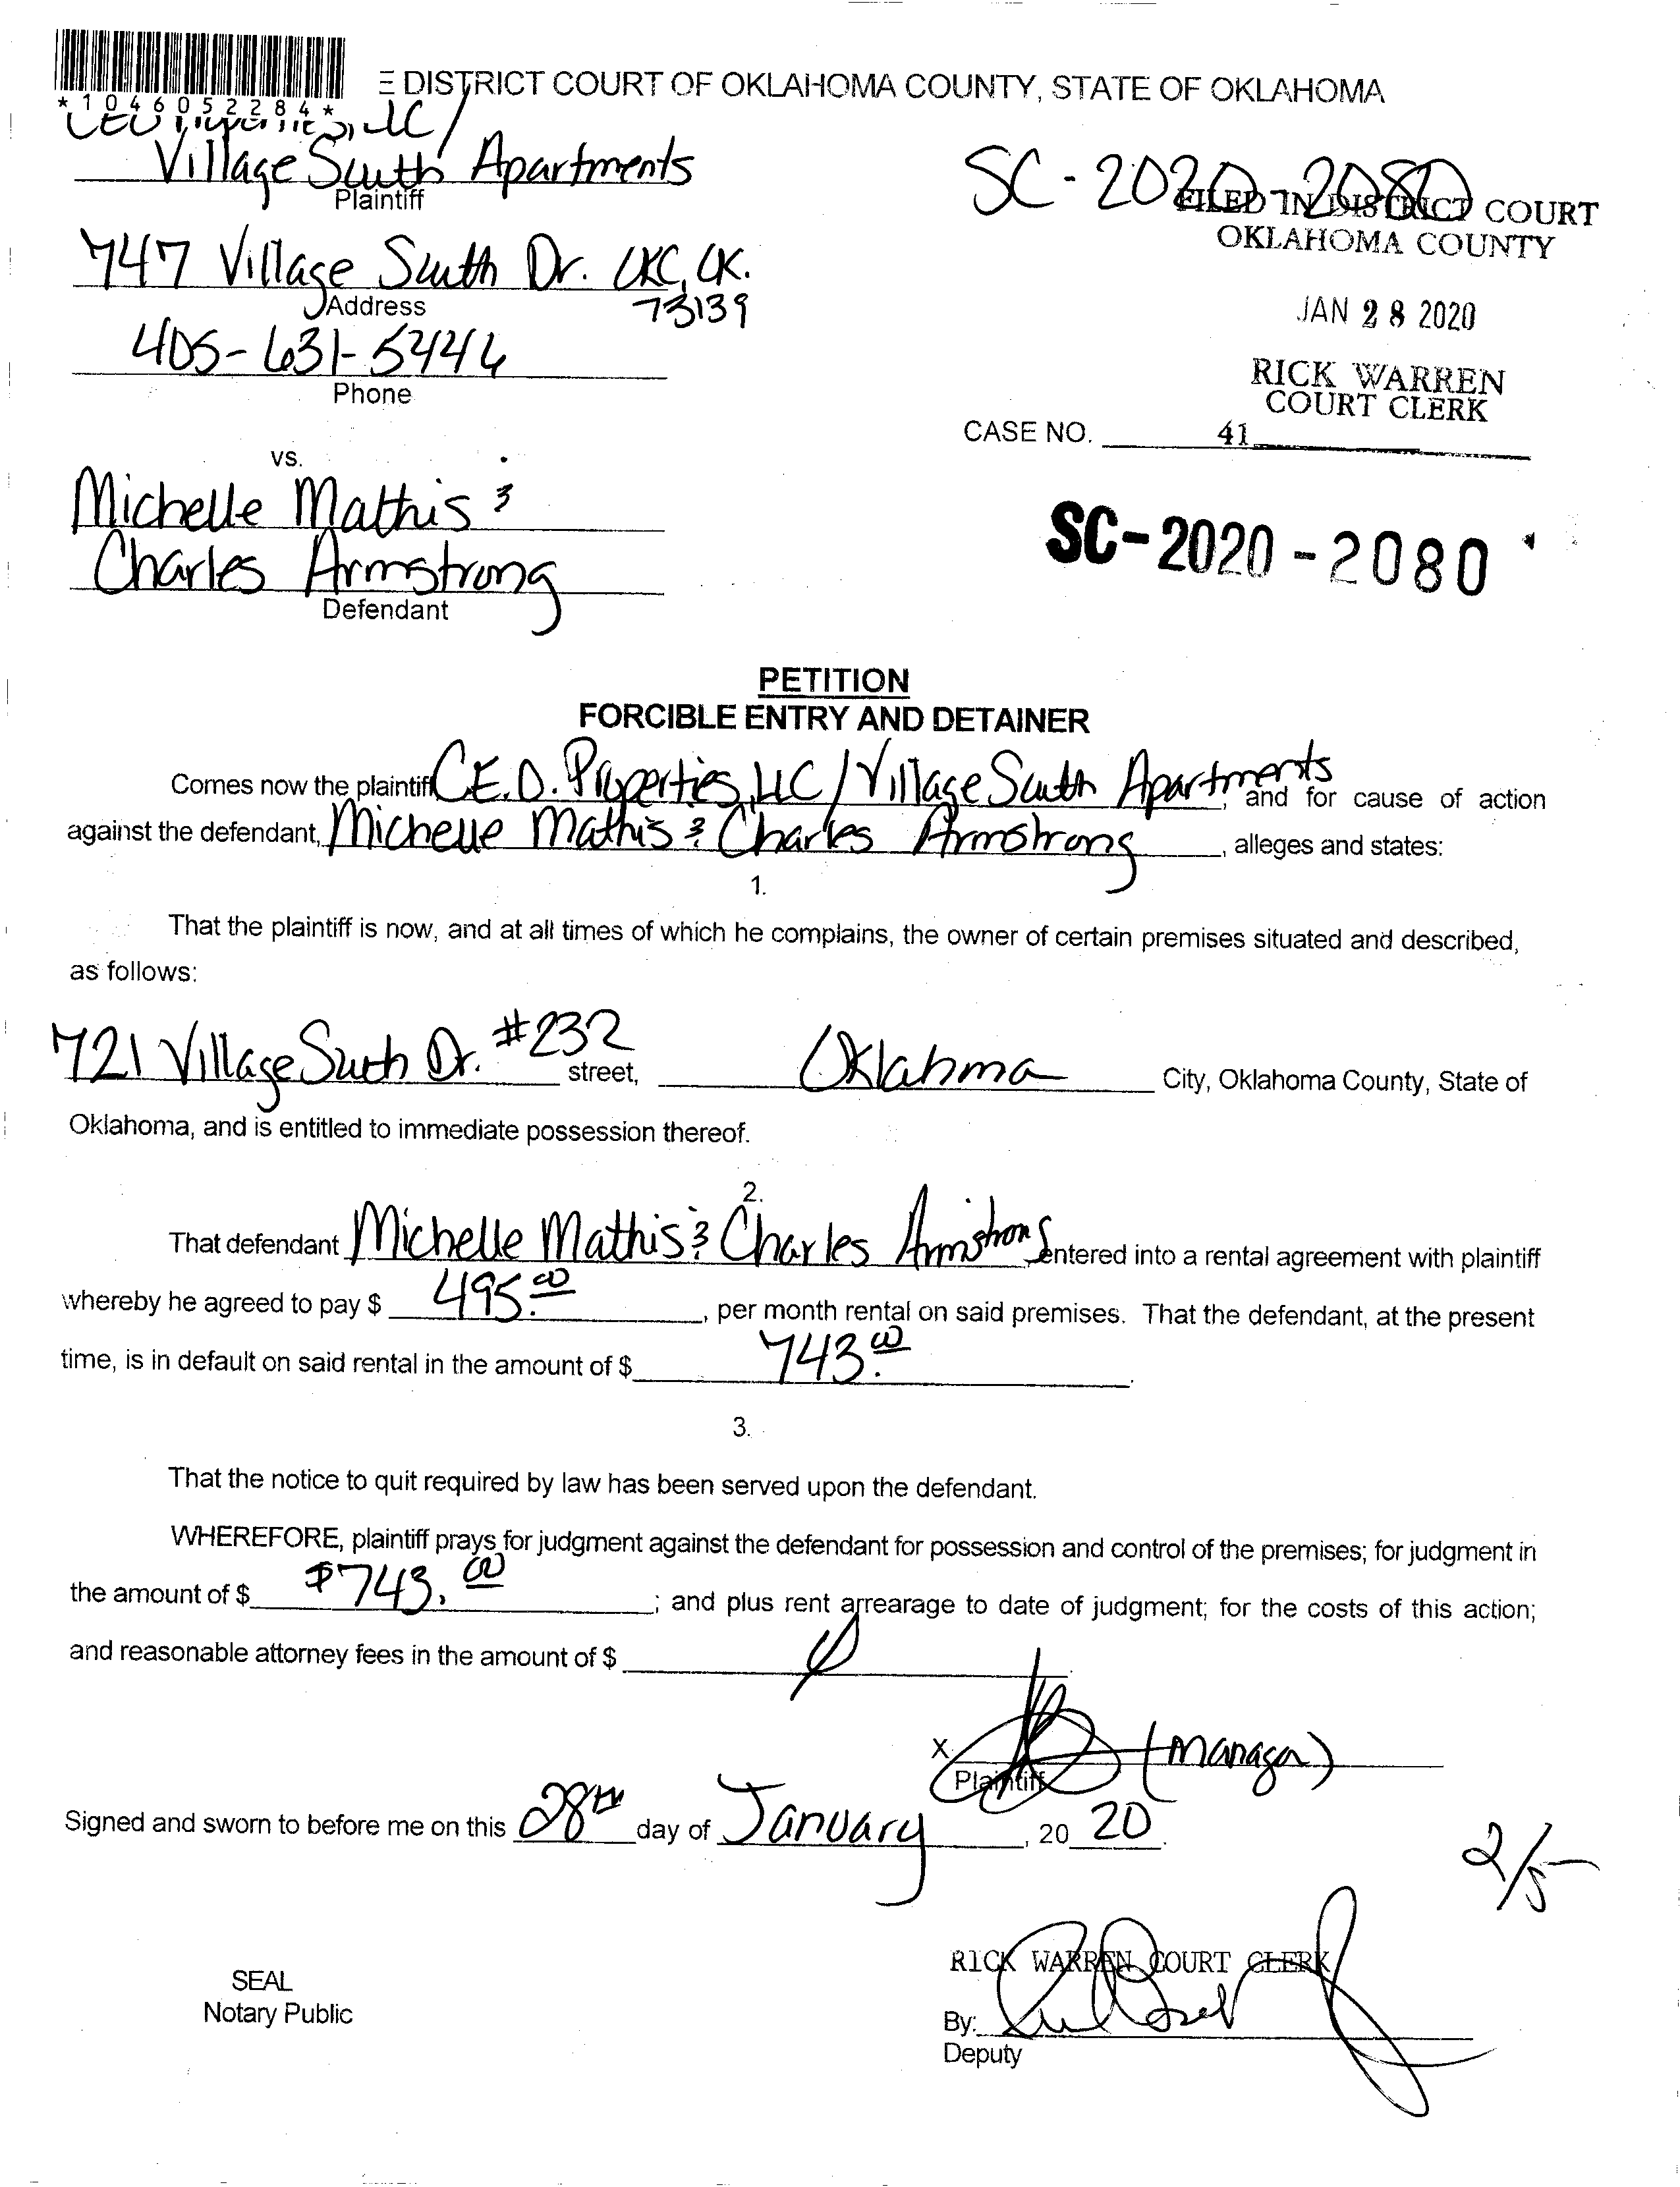 *1046052284*
E DISTRICT COURT OF OKLAHOMA COUNTY, STATE OF OKLAHOMA
LLC/
Village South Apartments
Plaintiff
SC-2020-2080
FILED IN DISTRICT COURT
OKLAHOMA COUNTY
747 Village South Dr. OKC, OK.
73139
Address
JAN 28 2020
405-631-5446
Phone
RICK WARREN
COURT CLERK
CASE NO. 41
vs.
Michelle Mathis &
Charles Armstrong
Defendant
SC-2020-2080
PETITION
FORCIBLE ENTRY AND DETAINER
Comes now the plaintiff C.E.D. Properties, LLC/Village South Apartments, and for cause of action
against the defendant, Michelle Mathis & Charles Armstrong, alleges and states:
1.
That the plaintiff is now, and at all times of which he complains, the owner of certain premises situated and described,
as follows:
721 Village South Dr. #232 street, Oklahoma City, Oklahoma County, State of
Oklahoma, and is entitled to immediate possession thereof.
2.
That defendant Michelle Mathis & Charles Armstrong entered into a rental agreement with plaintiff
whereby he agreed to pay $ 495.00, per month rental on said premises. That the defendant, at the present
time, is in default on said rental in the amount of $ 743.00.
3.
That the notice to quit required by law has been served upon the defendant.
WHEREFORE, plaintiff prays for judgment against the defendant for possession and control of the premises; for judgment in
the amount of $ $743.00; and plus rent arrearage to date of judgment; for the costs of this action;
and reasonable attorney fees in the amount of $ ∅
X (Manager)
Plaintiff
Signed and sworn to before me on this 28th day of January, 20 20.
2/5
RICK WARREN COURT CLERK
SEAL
Notary Public
By:
Deputy